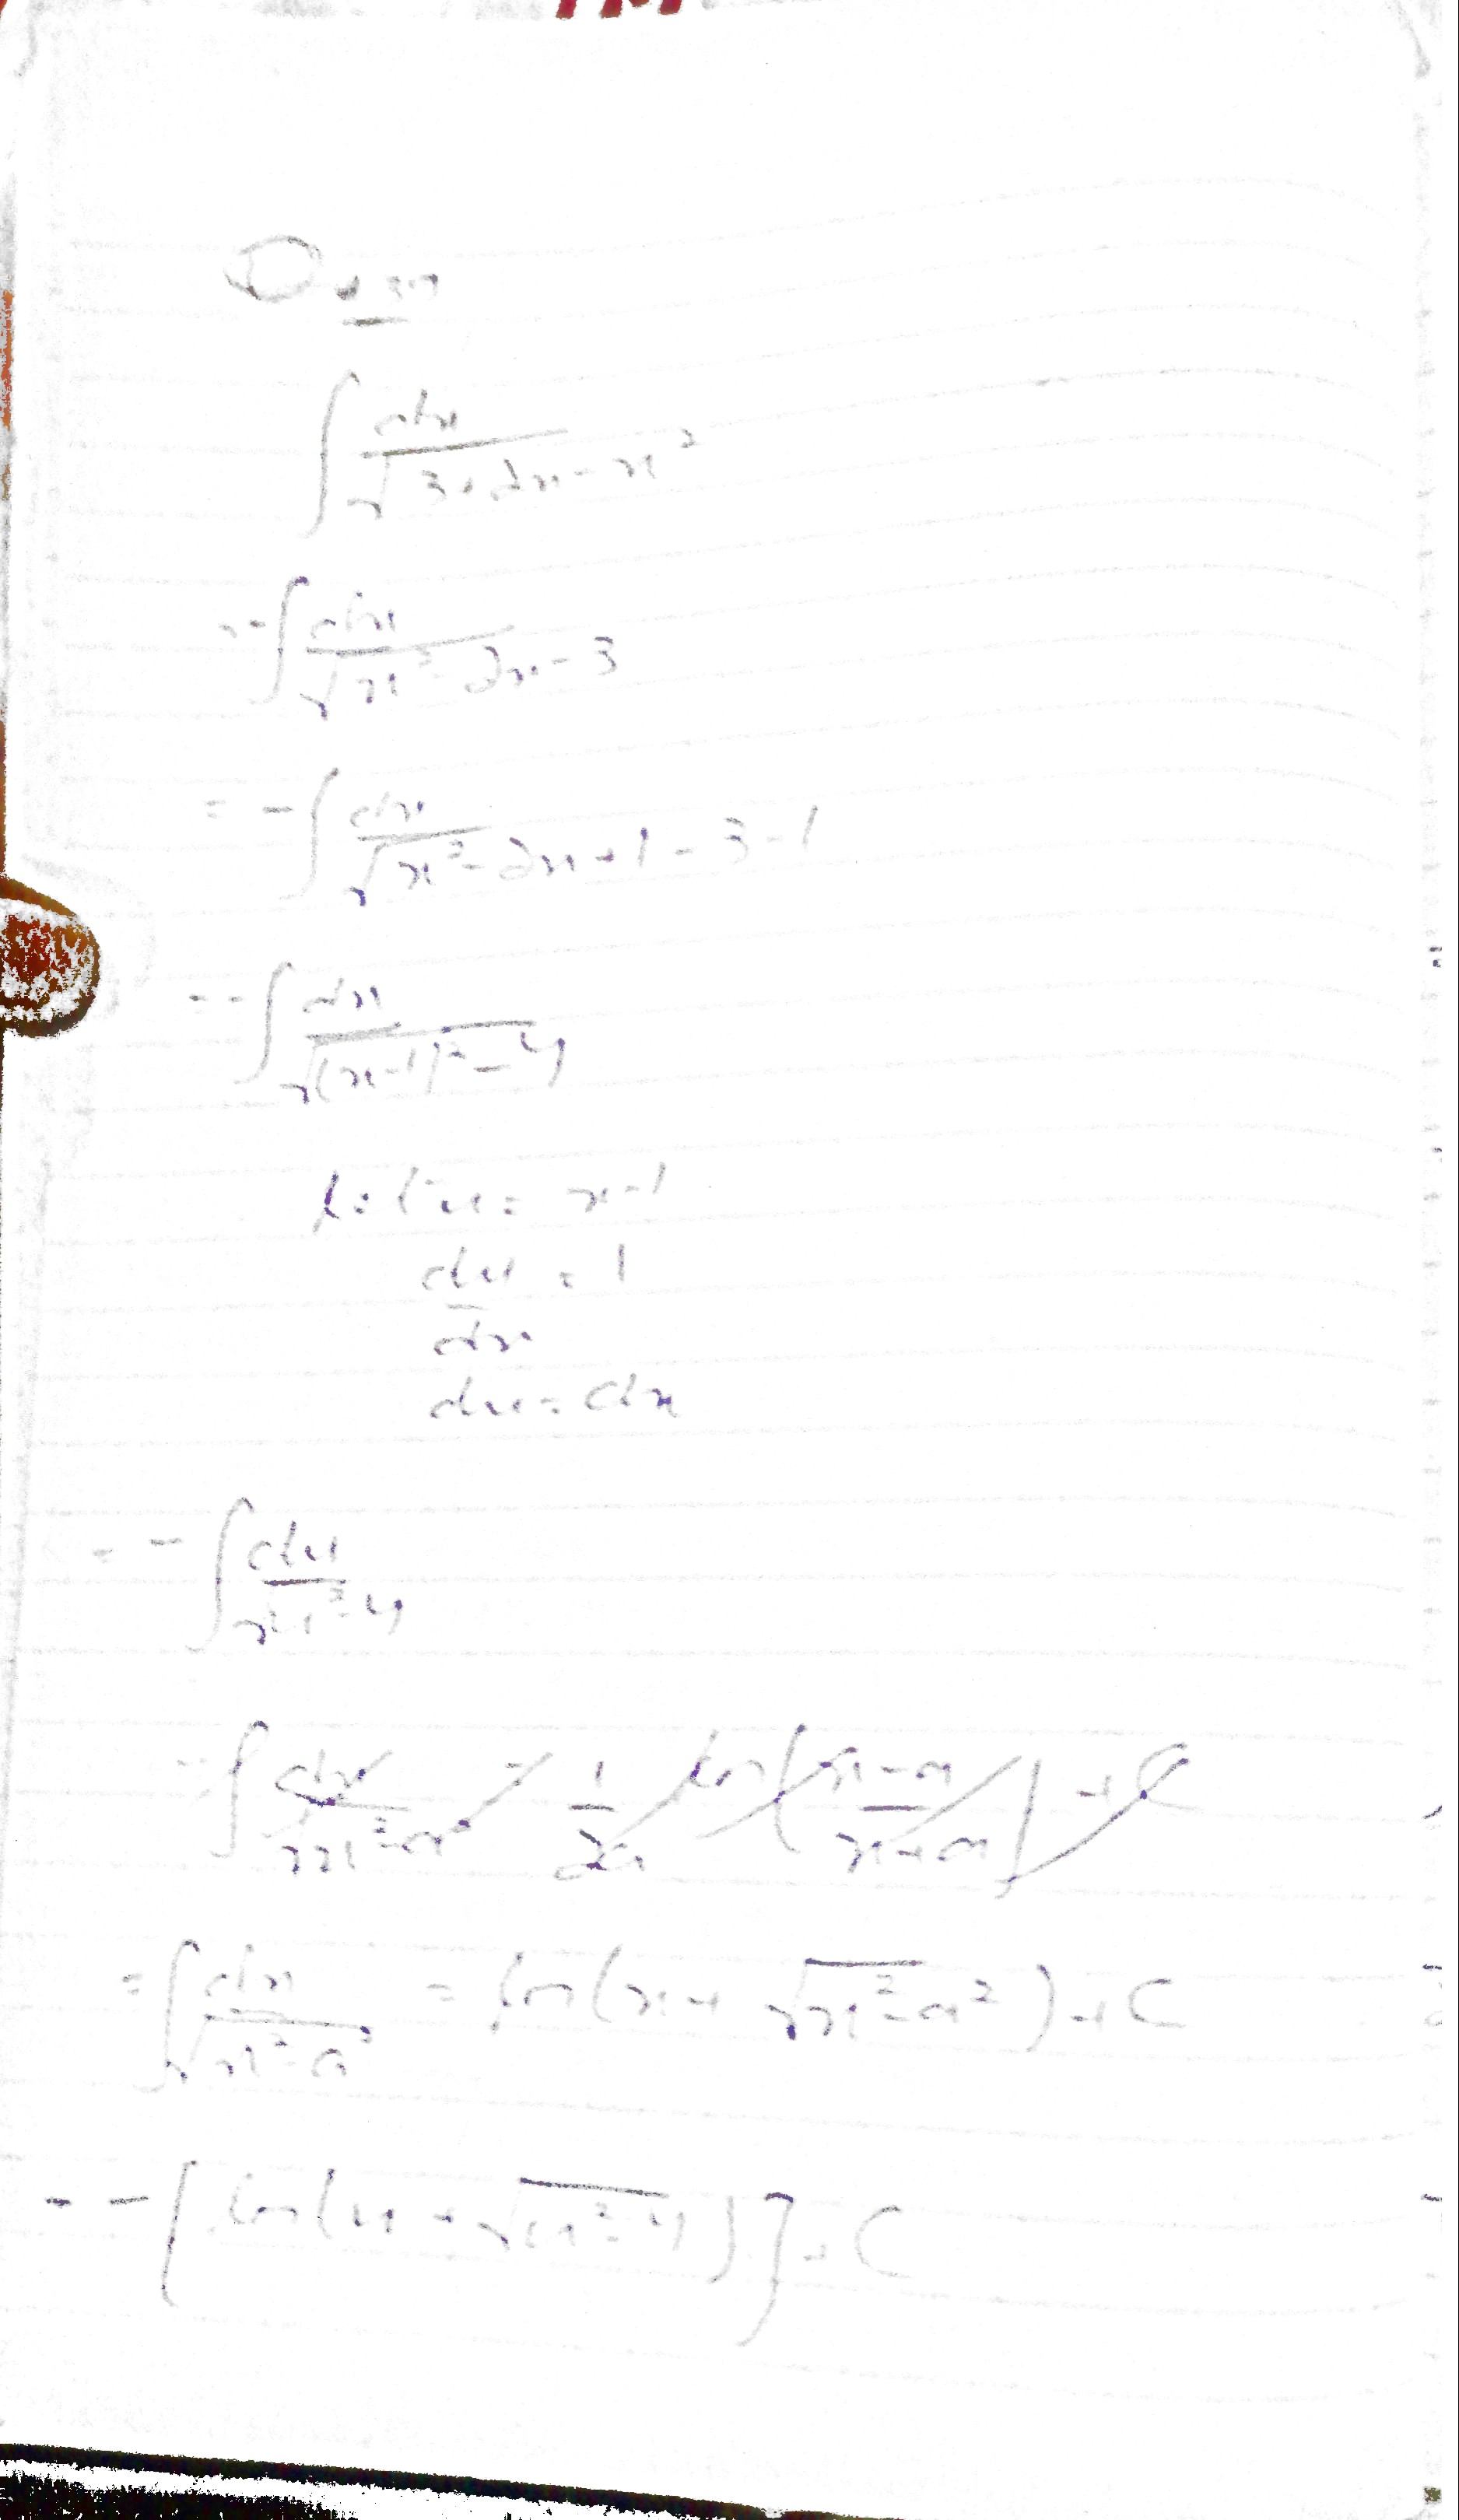 Quen
∫ dx / √3+2x-x²
= -∫ dx / √x²-2x-3
= -∫ dx / √x²-2x+1-3-1
= -∫ dx / √(x-1)²-4
Let u = x-1
du/dx = 1
du = dx
= -∫ du / √u²-4
= ∫ dx / x²-a² = 1/2a ln(x-a / x+a) + C
= ∫ dx / √x²-a² = ln(x+√x²-a²)+C
= -[ln(u+√u²-4)]+C